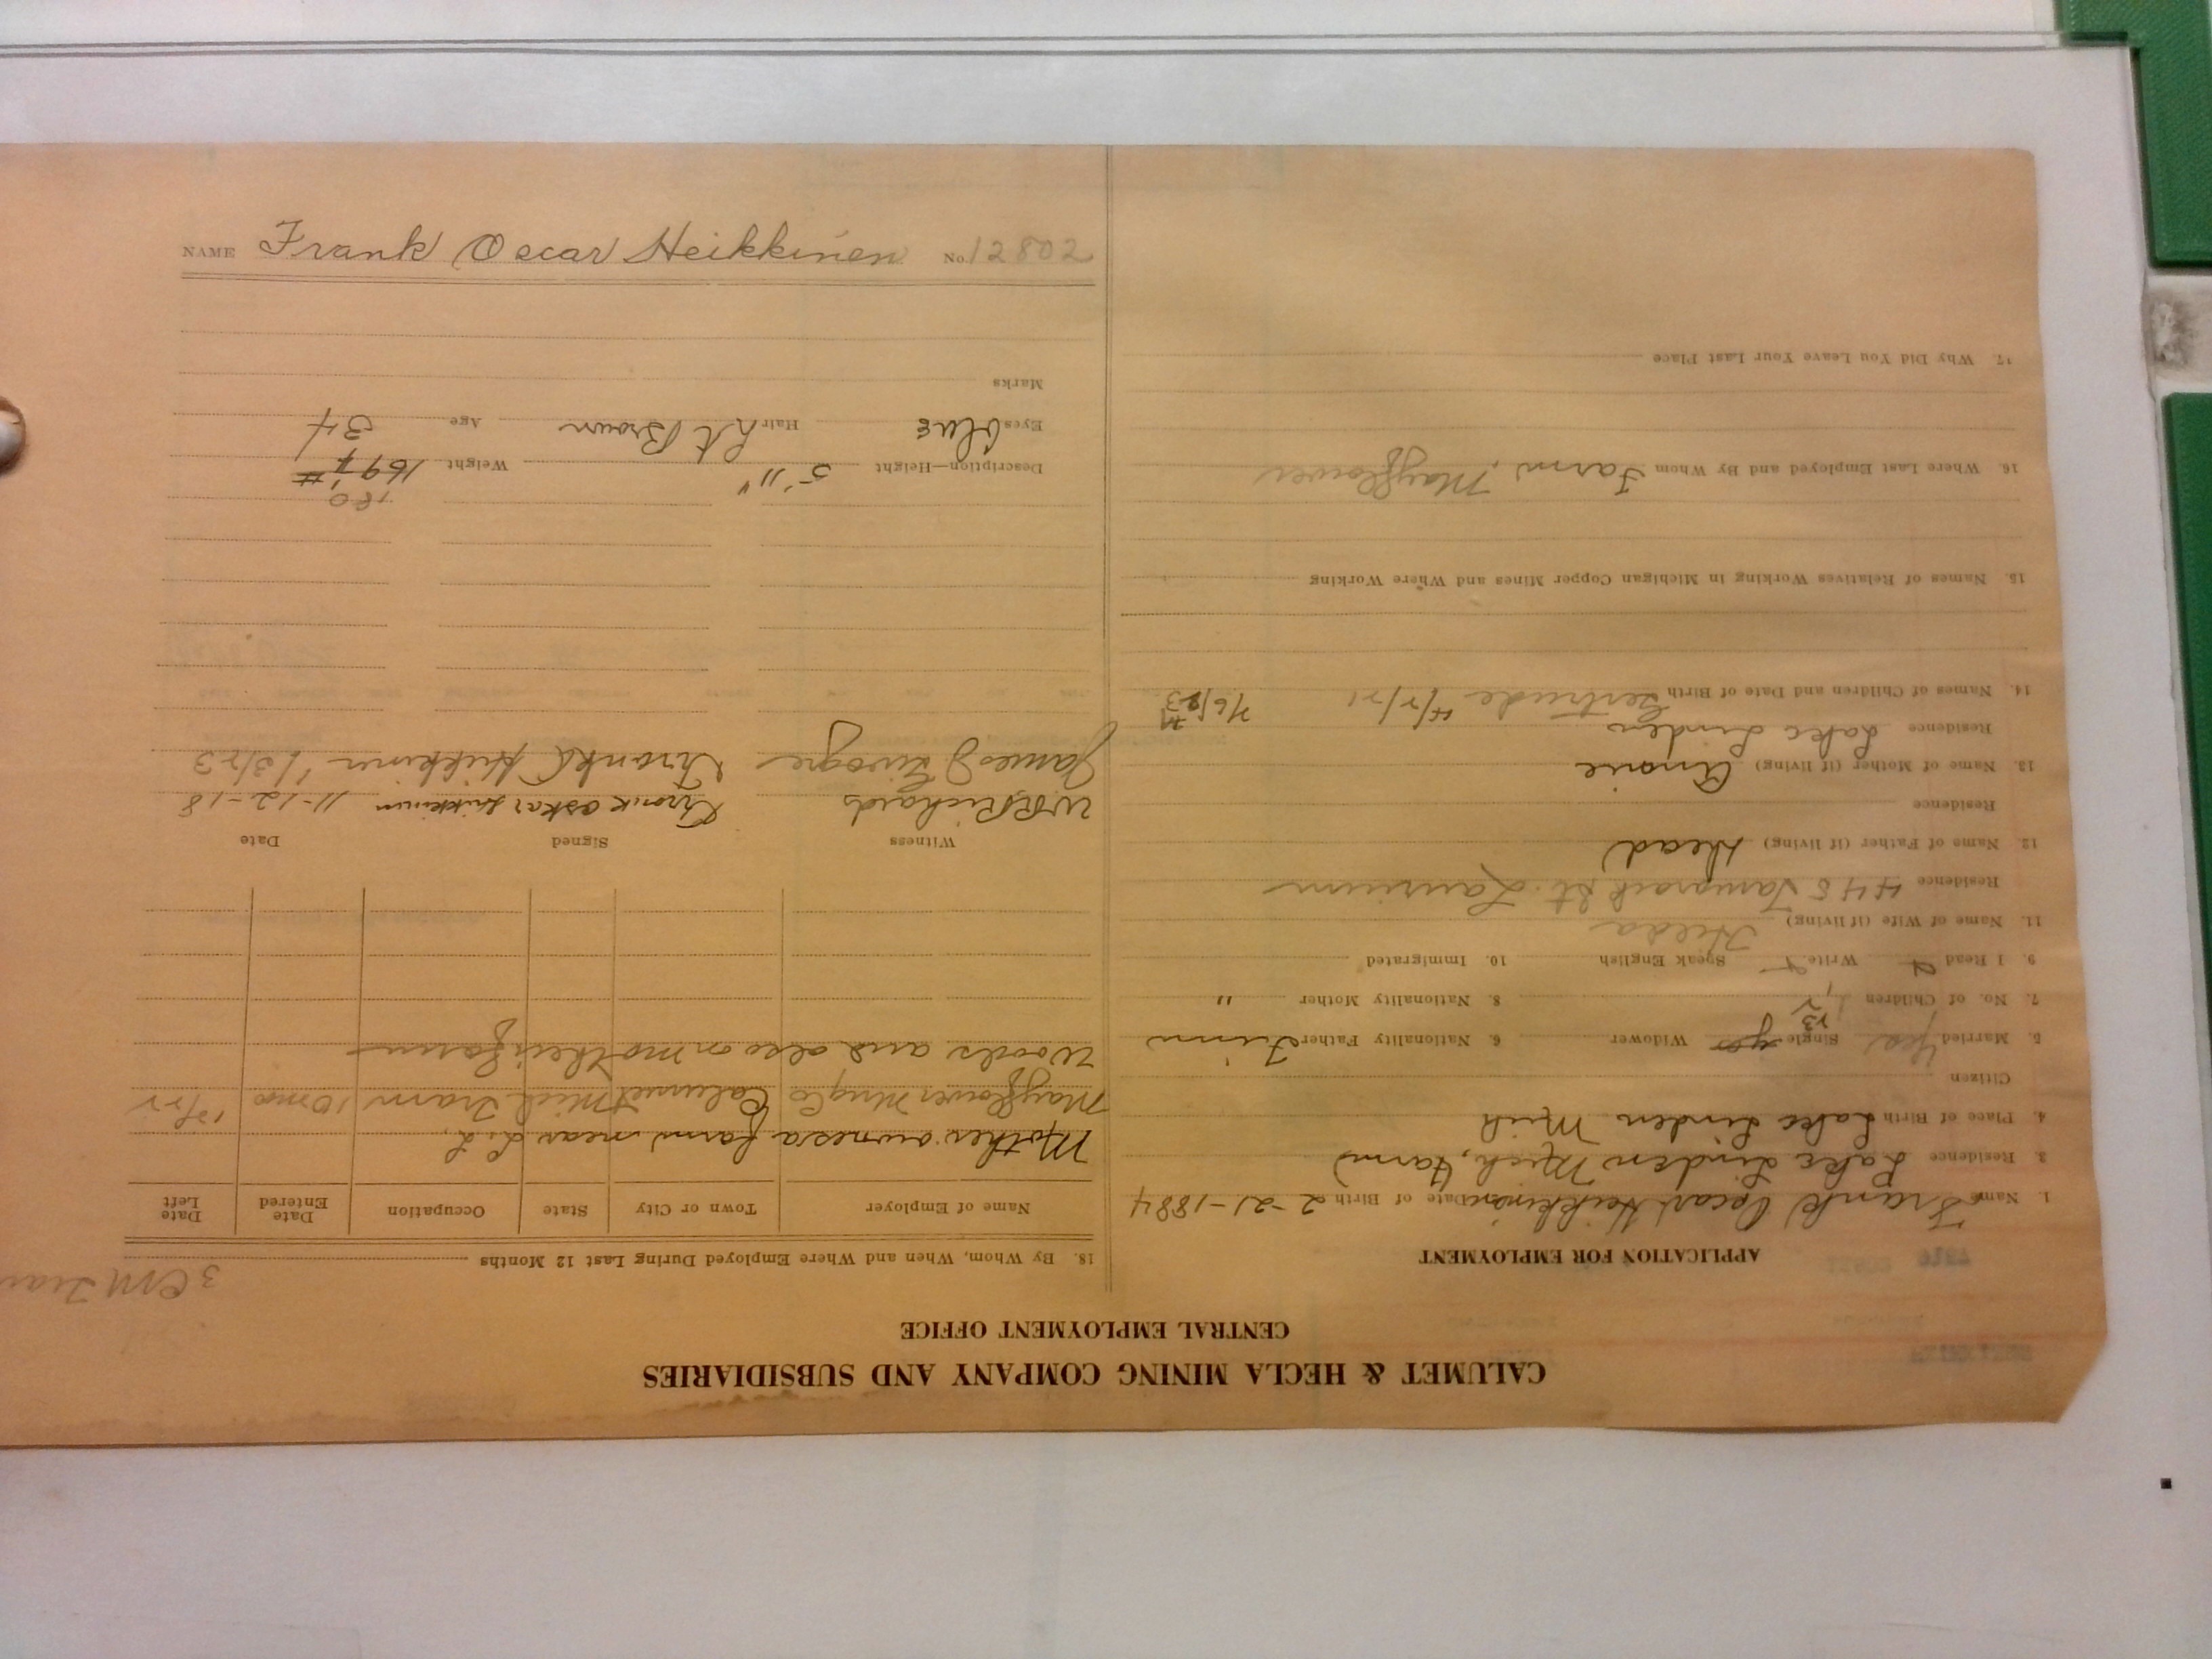 CALUMET & HECLA MINING COMPANY AND SUBSIDIARIES
CENTRAL EMPLOYMENT OFFICE
APPLICATION FOR EMPLOYMENT
1. Name Frank Oscar Heikkinen Date of Birth 2-21-1884
3. Residence Lake Linden Mich, Farm
4. Place of Birth Lake Linden Mich
Citizen
5. Married Yes Single yes Widower 6. Nationality Father Finn
7. No. of Children 8. Nationality Mother "
9. I Read Write Speak English 10. Immigrated
11. Name of Wife (if living) Hilda
Residence 445 Tamarack St. Laurium
12. Name of Father (if living) Dead
Residence
13. Name of Mother (if living) Annie
Residence Lake Linden
14. Names of Children and Date of Birth Gertrude
15. Names of Relatives Working in Michigan Copper Mines and Where Working
16. Where Last Employed and By Whom Farm. Mayflower
17. Why Did You Leave Your Last Place
18. By Whom, When and Where Employed During Last 12 Months
Name of Employer Town or City State Occupation Date Entered Date Left
Mother owns a farm near L. L.
Mayflower Mng Co Calumet Mich Tram 10 mo
Woods and also on mother's farm
Witness Signed Date
W R Richards Frank Oskar Heikkinen 11-12-18
James J Frank Heikkinen 1/3/23
180
Description—Height 5' 11" Weight 169
Eyes blue Hair Lt Brown Age 34
Marks
NAME Frank Oscar Heikkinen No. 12802